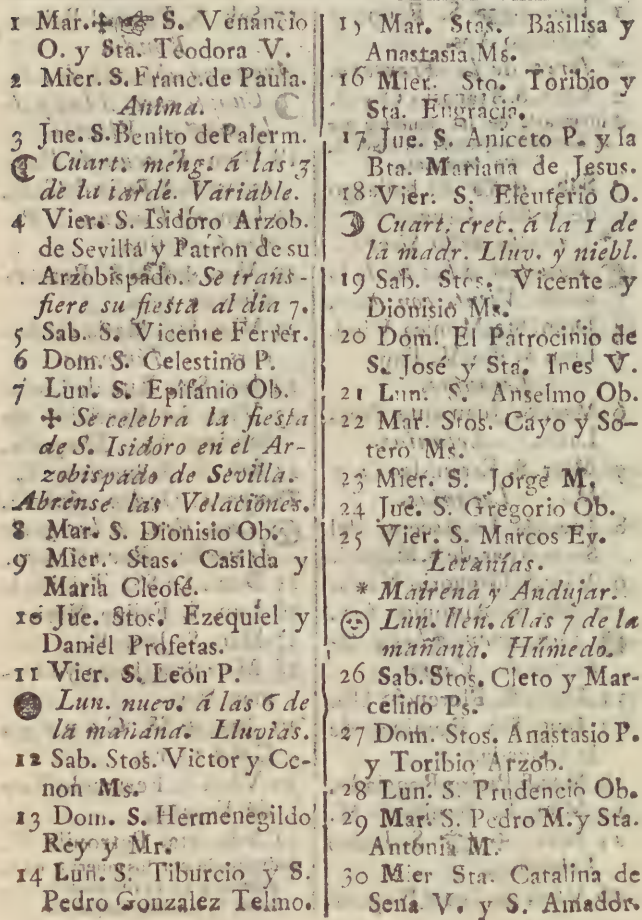 1 Mar. ✠ ☞ S. Venancio
O. y Sta. Teodora V.
2 Mier. S. Franc. de Paula.
Anima.
3 Jue. S. Benito de Palerm.
☾ Cuart. meng. á las 3
de la tarde. Variable.
4 Vier. S. Isidoro Arzob.
de Sevilla y Patron de su
Arzobispado. Se trans-
fiere su fiesta al dia 7.
5 Sab. S. Vicente Ferrer.
6 Dom. S. Celestino P.
7 Lun. S. Epifanio Ob.
✠ Se celebra la fiesta
de S. Isidoro en el Ar-
zobispado de Sevilla.
Abrense las Velaciones.
8 Mar. S. Dionisio Ob.
9 Mier. Stas. Casilda y
Maria Cleofé.
10 Jue. Stos. Ezequiel y
Daniel Profetas.
11 Vier. S. Leon P.
● Lun. nuev. á las 6 de
la mañana. Lluvias.
12 Sab. Stos. Victor y Ce-
non Ms.
13 Dom. S. Hermenegildo
Rey y Mr.
14 Lun. S. Tiburcio y S.
Pedro Gonzalez Telmo.
15 Mar. Stas. Basilisa y
Anastasia Ms.
16 Mier. Sto. Toribio y
Sta. Engracia.
17 Jue. S. Aniceto P. y la
Bta. Mariana de Jesus.
18 Vier. S. Eleuterio O.
☽ Cuart. crec. á la 1 de
la madr. Lluv. y niebl.
19 Sab. Stos. Vicente y
Dionisio Ms.
20 Dom. El Patrocinio de
S. José y Sta. Ines V.
21 Lun. S. Anselmo Ob.
22 Mar. Stos. Cayo y So-
tero Ms.
23 Mier. S. Jorge M.
24 Jue. S. Gregorio Ob.
25 Vier. S. Marcos Ev.
Letanías.
* Mairena y Andujar.
Lun. llen. á las 7 de la
mañana. Húmedo.
26 Sab. Stos. Cleto y Mar-
celino Ps.
27 Dom. Stos. Anastasio P.
y Toribio Arzob.
28 Lun. S. Prudencio Ob.
29 Mar. S. Pedro M. y Sta.
Antonia M.
30 Mier Sta. Catalina de
Sena V. y S. Amador.